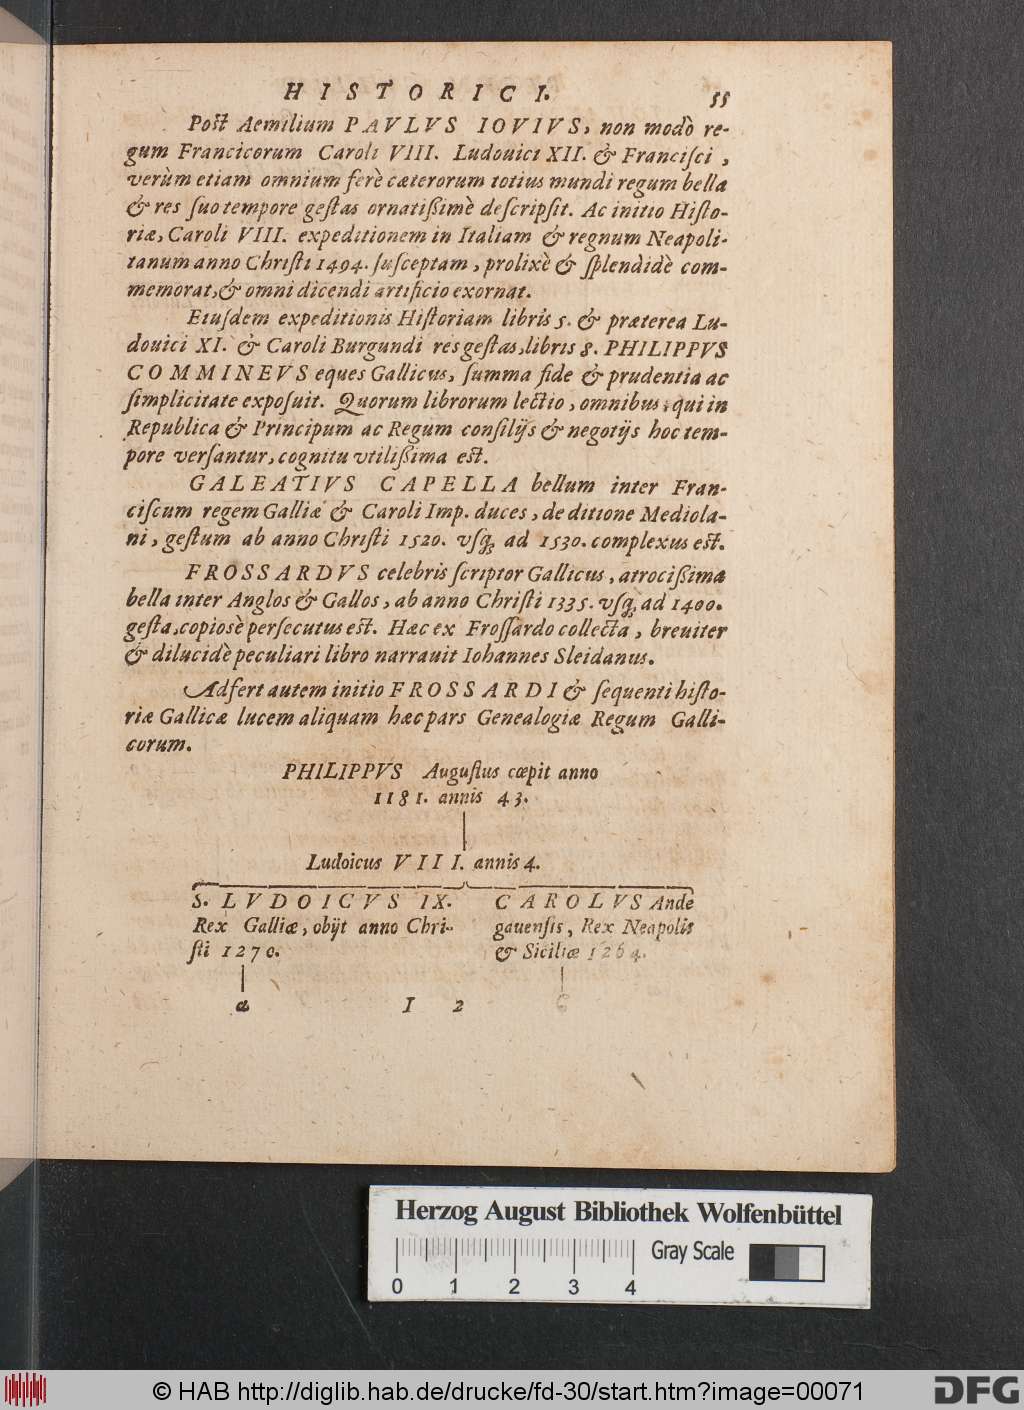 HISTORICI. 55
Post Aemilium PAVLVS IOVIVS, non modò re-
gum Francicorum Caroli VIII. Ludouici XII. & Francisci,
verùm etiam omnium ferè cæterorum totius mundi regum bella
& res suo tempore gestas ornatißimè descripsit. Ac initio Histo-
riæ, Caroli VIII. expeditionem in Italiam & regnum Neapoli-
tanum anno Christi 1494. susceptam, prolixè & splendidè com-
memorat, & omni dicendi artificio exornat.
Eiusdem expeditionis Historiam libris 5. & præterea Lu-
douici XI. & Caroli Burgundi res gestas, libris 8. PHILIPPVS
COMMINEVS eques Gallicus, summa fide & prudentia ac
simplicitate exposuit. Quorum librorum lectio, omnibus, qui in
Republica & Principum ac Regum consilijs & negotijs hoc tem-
pore versantur, cognitu vtilißima est.
GALEATIVS CAPELLA bellum inter Fran-
ciscum regem Galliæ & Caroli Imp. duces, de ditione Mediola-
ni, gestum ab anno Christi 1520. vsq; ad 1530. complexus est.
FROSSARDVS celebris scriptor Gallicus, atrocißima
bella inter Anglos & Gallos, ab anno Christi 1335. vsq; ad 1400.
gesta, copiosè persecutus est. Hæc ex Frossardo collecta, breuiter
& dilucidè peculiari libro narrauit Iohannes Sleidanus.
Adfert autem initio FROSSARDI & sequenti histo-
riæ Gallicæ lucem aliquam hæc pars Genealogiæ Regum Galli-
corum.
PHILIPPVS Augustus cœpit anno
1181. annis 43.
Ludoicus VIII. annis 4.
S. LVDOICVS IX.
Rex Galliæ, obijt anno Chri-
sti 1270.
a
CAROLVS Ande
gauensis, Rex Neapolis
& Siciliæ 1264.
I 2
Herzog August Bibliothek Wolfenbüttel
Gray Scale
0 1 2 3 4
© HAB http://diglib.hab.de/drucke/fd-30/start.htm?image=00071
DFG